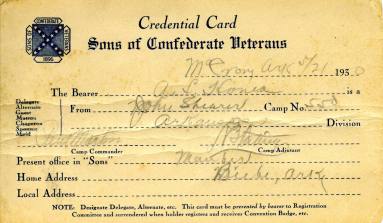 SONS OF CONFEDERATE VETERANS
1896
Credential Card
Sons of Confederate Veterans
Ark 5/21 1930
The Bearer is a
Delegate
Alternate
Guest
Matron
Chaperon
Sponsor
Maid
From John Shearer Camp No.
Arkansas Division
Camp Commander Camp Adjutant
Present office in "Sons" Member
Home Address Beebe, Ark
Local Address
NOTE: Designate Delegate, Alternate, etc. This card must be presented by bearer to Registration
Committee and surrendered when holder registers and receives Convention Badge, etc.